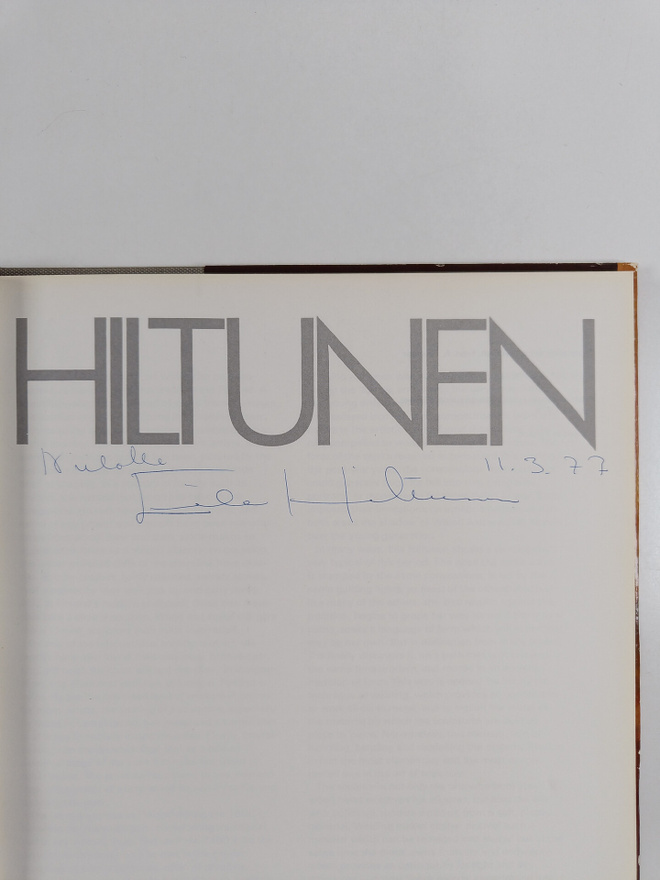 HILTUNEN
11.3.77
Eila Hiltunen